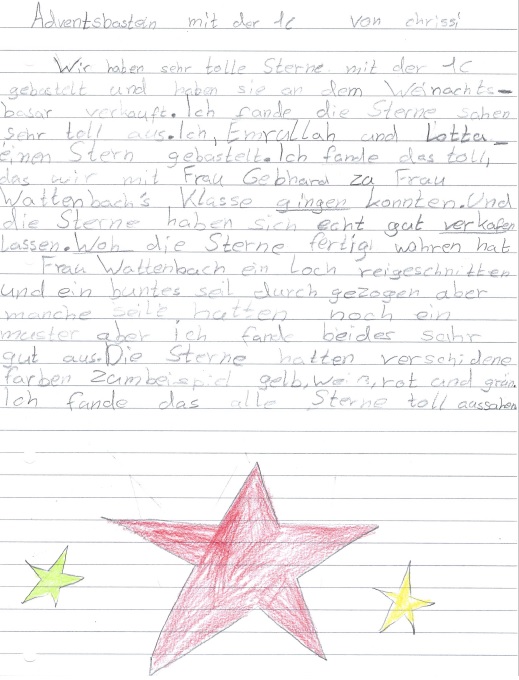 Adventsbastein mit der 1c von chrissi
Wir haben sehr tolle Sterne mit der 1c
gebastelt und haben sie an dem Weinachts-
basar verkauft. Ich fande die Sterne sahen
sehr toll aus. Ich, Emrullah und Lotta
einen Stern gebastelt. Ich fande das toll,
das wir mit Frau Gebhard zu Frau
Wattenbach's Klasse gingen konnten. Und
die Sterne haben sich echt gut verkafen
lassen. Woh die Sterne fertig wohren hat
Frau Wattenbach ein Loch reigeschnitten
und ein buntes seil durch gezogen aber
manche seile hatten noch ein
muster aber ich fande beides sahr
gut aus. Die Sterne hatten verschidene
farben zumbeispid gelb, weis, rot und grün.
Ich fande das alle Sterne toll aussahen